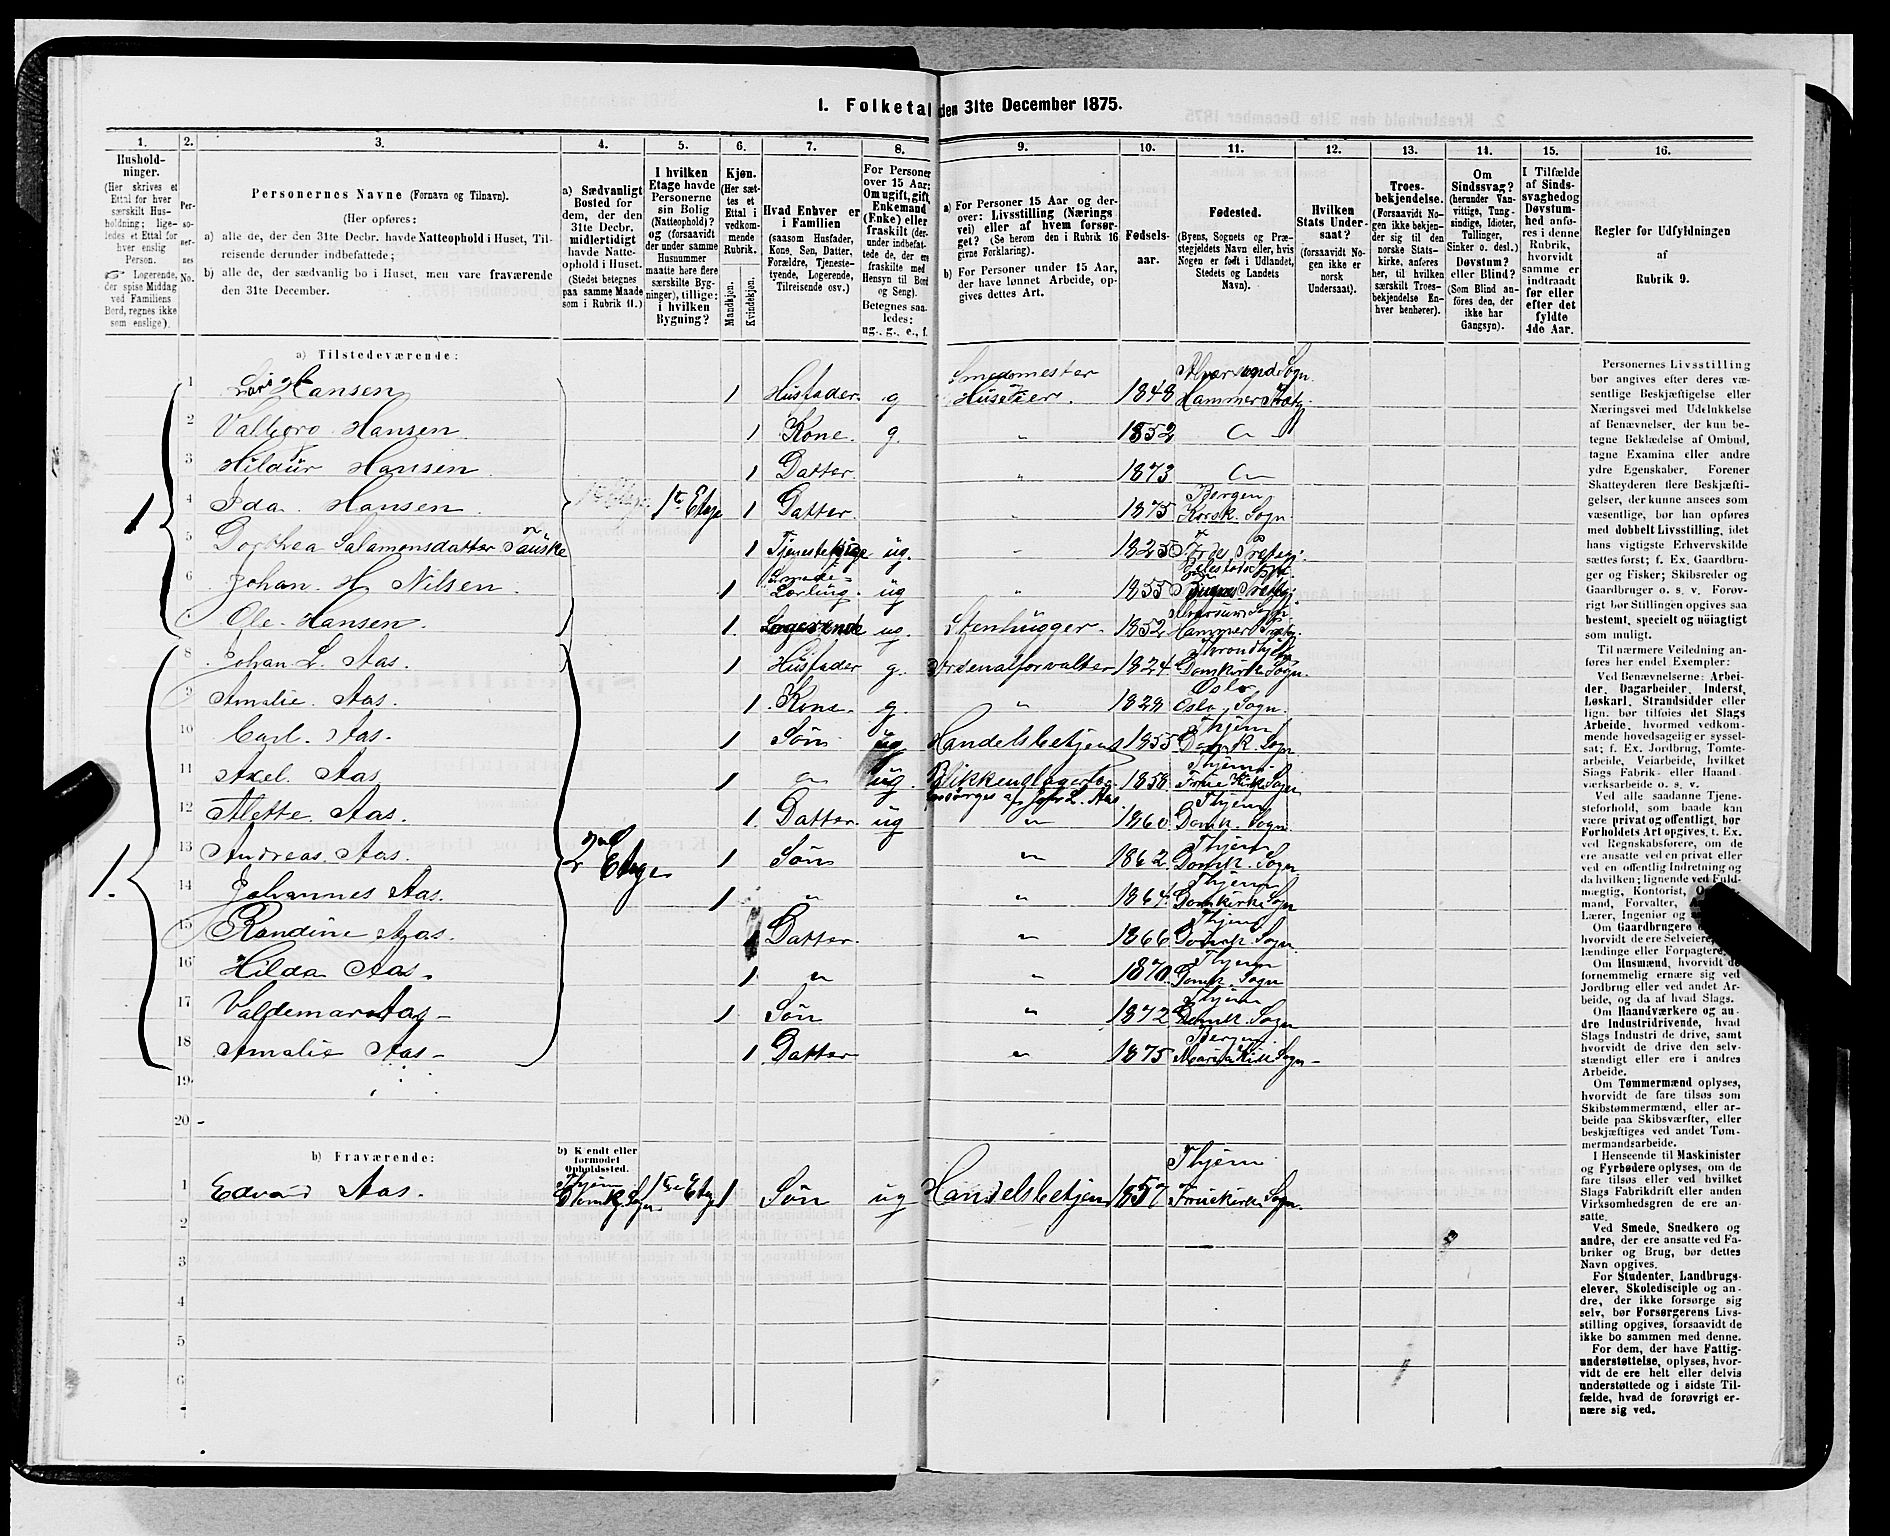 1. Folketal den 31te December 1875.
1. 2. 3. 4. 5. 6. 7. 8. 9. 10. 11. 12. 13. 14. 15. 16.
Hushold-
ninger.
(Her skrives et
Ettal for hver
særskilt Hus-
holdning; lige-
ledes et Ettal for
hver enslig
Person.
☞ Logerende,
der spise Middag
ved Familiens
Bord, regnes ikke
som enslige).
Per-
so-
ner-
nes
No.
Personernes Navne (Fornavn og Tilnavn).
(Her opføres:
a) alle de, der den 31te Decbr. havde Natteophold i Huset, Til-
reisende derunder indbefattede;
b) alle de, der sædvanlig bo i Huset, men vare fraværende
den 31te December.
a) Sædvanligt
Bosted for
dem, der den
31te Decbr.
midlertidigt
havde Natte-
ophold i Huset.
(Stedet betegnes
paa samme Maade
som i Rubrik 11.)
I hvilken
Etage havde
Personerne
sin Bolig
(Natteophold)?
og (forsaavidt
der under samme
Husnummer
maatte høre flere
særskilte Byg-
ninger), tillige:
i hvilken
Bygning?
Kjøn.
(Her sæt-
tes et
Ettal i
vedkom-
mende
Rubrik.
Mandkjøn.
Kvindekjøn.
Hvad Enhver er
i Familien
(saasom Husfader,
Kone, Søn, Datter,
Forældre, Tjeneste-
tyende, Logerende,
Tilreisende osv.)
For Personer
over 15 Aar:
Om ugift, gift,
Enkemand
(Enke) eller
fraskilt (der-
under indbefat-
tede de, der ere
fraskilte med
Hensyn til Bord
og Seng).
Betegnes saa-
ledes:
ug., g., e., f.
a) For Personer 15 Aar og der-
over: Livsstilling (Nærings
vei) eller af hvem forsør-
get? (Se herom den i Rubrik 16
givne Forklaring).
b) For Personer under 15 Aar,
der have lønnet Arbeide, op-
gives dettes Art.
Fødsels-
aar.
Fødested.
(Byens, Sognets og Præ-
stegjeldets Navn eller, hvis
Nogen er født i Udlandet,
Stedets og Landets
Navn).
Hvilken
Stats Under-
saat?
(forsaavidt No-
gen ikke er
norsk
Undersaat).
Troes-
bekjendelse.
(Forsaavidt No-
gen ikke bekjen-
der sig til den
norske Stats-
kirke, anføres
her, til hvilken
særskilt Troes-
bekjendelse En-
hver henhører).
Om
Sindssvag?
(herunder Van-
vittige, Tung-
sindige, Idioter,
Tullinger,
Sinker o. desl.)
Døvstum?
eller Blind?
(Som Blind an-
føres den, der
ikke har
Gangsyn).
I Tilfælde
af Sinds-
svaghed og
Døvstum-
hed anfø-
res i denne
Rubrik,
hvorvidt
samme er
indtraadt
før eller
efter det
fyldte
4de Aar.
Regler for Udfyldningen
af
Rubrik 9.
a) Tilstedeværende:
1 Lars H Hansen 1 Husfader g Smedmester Huseier 1848 Alversund Sogn Hammer Præstg
2 Valborg Hansen 1 Kone g. " 1852
3 Hildur Hansen 1 Datter " 1873
1 4 Ida Hansen 1te Etage 1 Datter. " 1875 Bergen Korsk. Sogn
5 Dorthea Salamonsdatter 1 Tjenestepige ug. " 1825 Førde Præstg:
6 Johan H Nilsen 1 Smede= Lærling. ug " 1855
7 Ole Hansen. 1 Logerende ug. Stenhugger 1852 Hammer Præstg.
8 Johan L. Aas. 1 Husfader g. Arsenalforvalter 1824 Throndhjem Domkirke Sogn.
9 Amalie Aas. 1 Kone g. " 1828 Oslo Oslo Sogn.
10 Carl Aas. 1 Søn ug Handelsbetjent 1855 Thjem Domk Sogn
11 Axel Aas 1 ug. 1858 Thjem Fruekirke Sogn
forsørges af Joh L. Aas.
12 Alette Aas. 1 Datter ug " 1860 Thjem Domk. Sogn
1. 13 Andreas Aas. 2den Etage 1 Søn " 1862 Thjem Domk. Sogn
14 Johannes Aas. 1 " " 1864 Thjem Domkirke Sogn
15 Randine Aas. 1 Datter. " 1866 Thjem Domk Sogn
16 Hilda Aas 1 " " 1870 Thjem Domk. Sogn
17 Valdemar Aas 1 Søn " 1872 Thjem Domk. Sogn
18 Amalie Aas 1 Datter " 1875 Bergen Maria Kirke Sogn
19
20
b) Fraværende:
b) Kjendt eller
formodet
Opholdssted.
1 Edvard Aas. Thjem Domk Sogn 1 Søn ug Handelsbetjent 1857 Thjem Fruekirke Sogn.
2
3
4
5
6
7
Personernes Livsstilling
bør angives efter deres væ-
sentlige Beskjæftigelse eller
Næringsvei med Udelukkelse
af Benævnelser, der kun be-
tegne Beklædelse af Ombud,
tagne Examina eller andre
ydre Egenskaber. Forener
Skatteyderen flere Beskjæfti-
gelser, der kunne ansees som
væsentlige, bør han opføres
med dobbelt Livsstilling, idet
hans vigtigste Erhvervskilde
sættes først; f. Ex. Gaardbru-
ger og Fisker; Skibsreder og
Gaardbruger o. s. v. Forøv-
rigt bør Stillingen opgives saa
bestemt, specielt og nøiagtigt
som muligt.
Til nærmere Veiledning an-
føres her endel Exempler:
Ved Benævnelserne: Arbei-
der, Dagarbeider, Inderst,
Løskarl, Strandsidder eller
lign. bør tilføies det Slags
Arbeide, hvormed vedkom-
mende hovedsagelig er syssel-
sat; f. Ex. Jordbrug, Tomte-
arbeide, Veiarbeide, hvilket
Slags Fabrik- eller Haand-
værksarbeide o. s. v.
Ved alle saadanne Tjene-
steforhold, som baade kan
være privat og offentligt, bør
Forholdets Art opgives, t. Ex.
ved Regnskabsførere, om de
ere ansatte ved en privat eller
ved en offentlig Indretning og
da hvilken; lignende ved Fuld-
mægtig, Kontorist,
mand, Forvalter,
Lærer, Ingeniør og
Om Gaardbrugere
hvorvidt de ere Selveiere,
lændinge eller Forpagtere.
Om Husmænd, hvorvidt de
fornemmelig ernære sig ved
Jordbrug eller ved andet Ar-
beide, og da af hvad Slags.
Om Haandværkere og an-
dre Industridrivende, hvad
Slags Industri de drive, samt
hvorvidt de drive den selv-
stændigt eller ere i andres
Arbeide.
Om Tømmermænd oplyses,
hvorvidt de fare tilsøs som
Skibstømmermænd, eller ar-
beide paa Skibsværfter, eller
beskjæftiges ved andet Tøm-
mermandsarbeide.
I Henseende til Maskinister
og Fyrbødere oplyses, om de
fare tilsøs eller ved hvilket
Slags Fabrikdrift eller anden
Virksomhedsgren de ere an-
satte.
Ved Smede, Snedkere og
andre, der ere ansatte ved Fa-
briker og Brug, bør dettes
Navn opgives.
For Studenter, Landbrugs-
elever, Skoledisciple og an-
dre, der ikke forsørge sig
selv, bør Forsørgerens Livs-
stilling opgives, forsaavidt de
ikke bo sammen med denne.
For dem, der have Fattig-
understøttelse, oplyses, hvor-
vidt de ere helt eller delvis
understøttede og i sidste Til-
fælde, hvad de forøvrigt er-
nære sig ved.